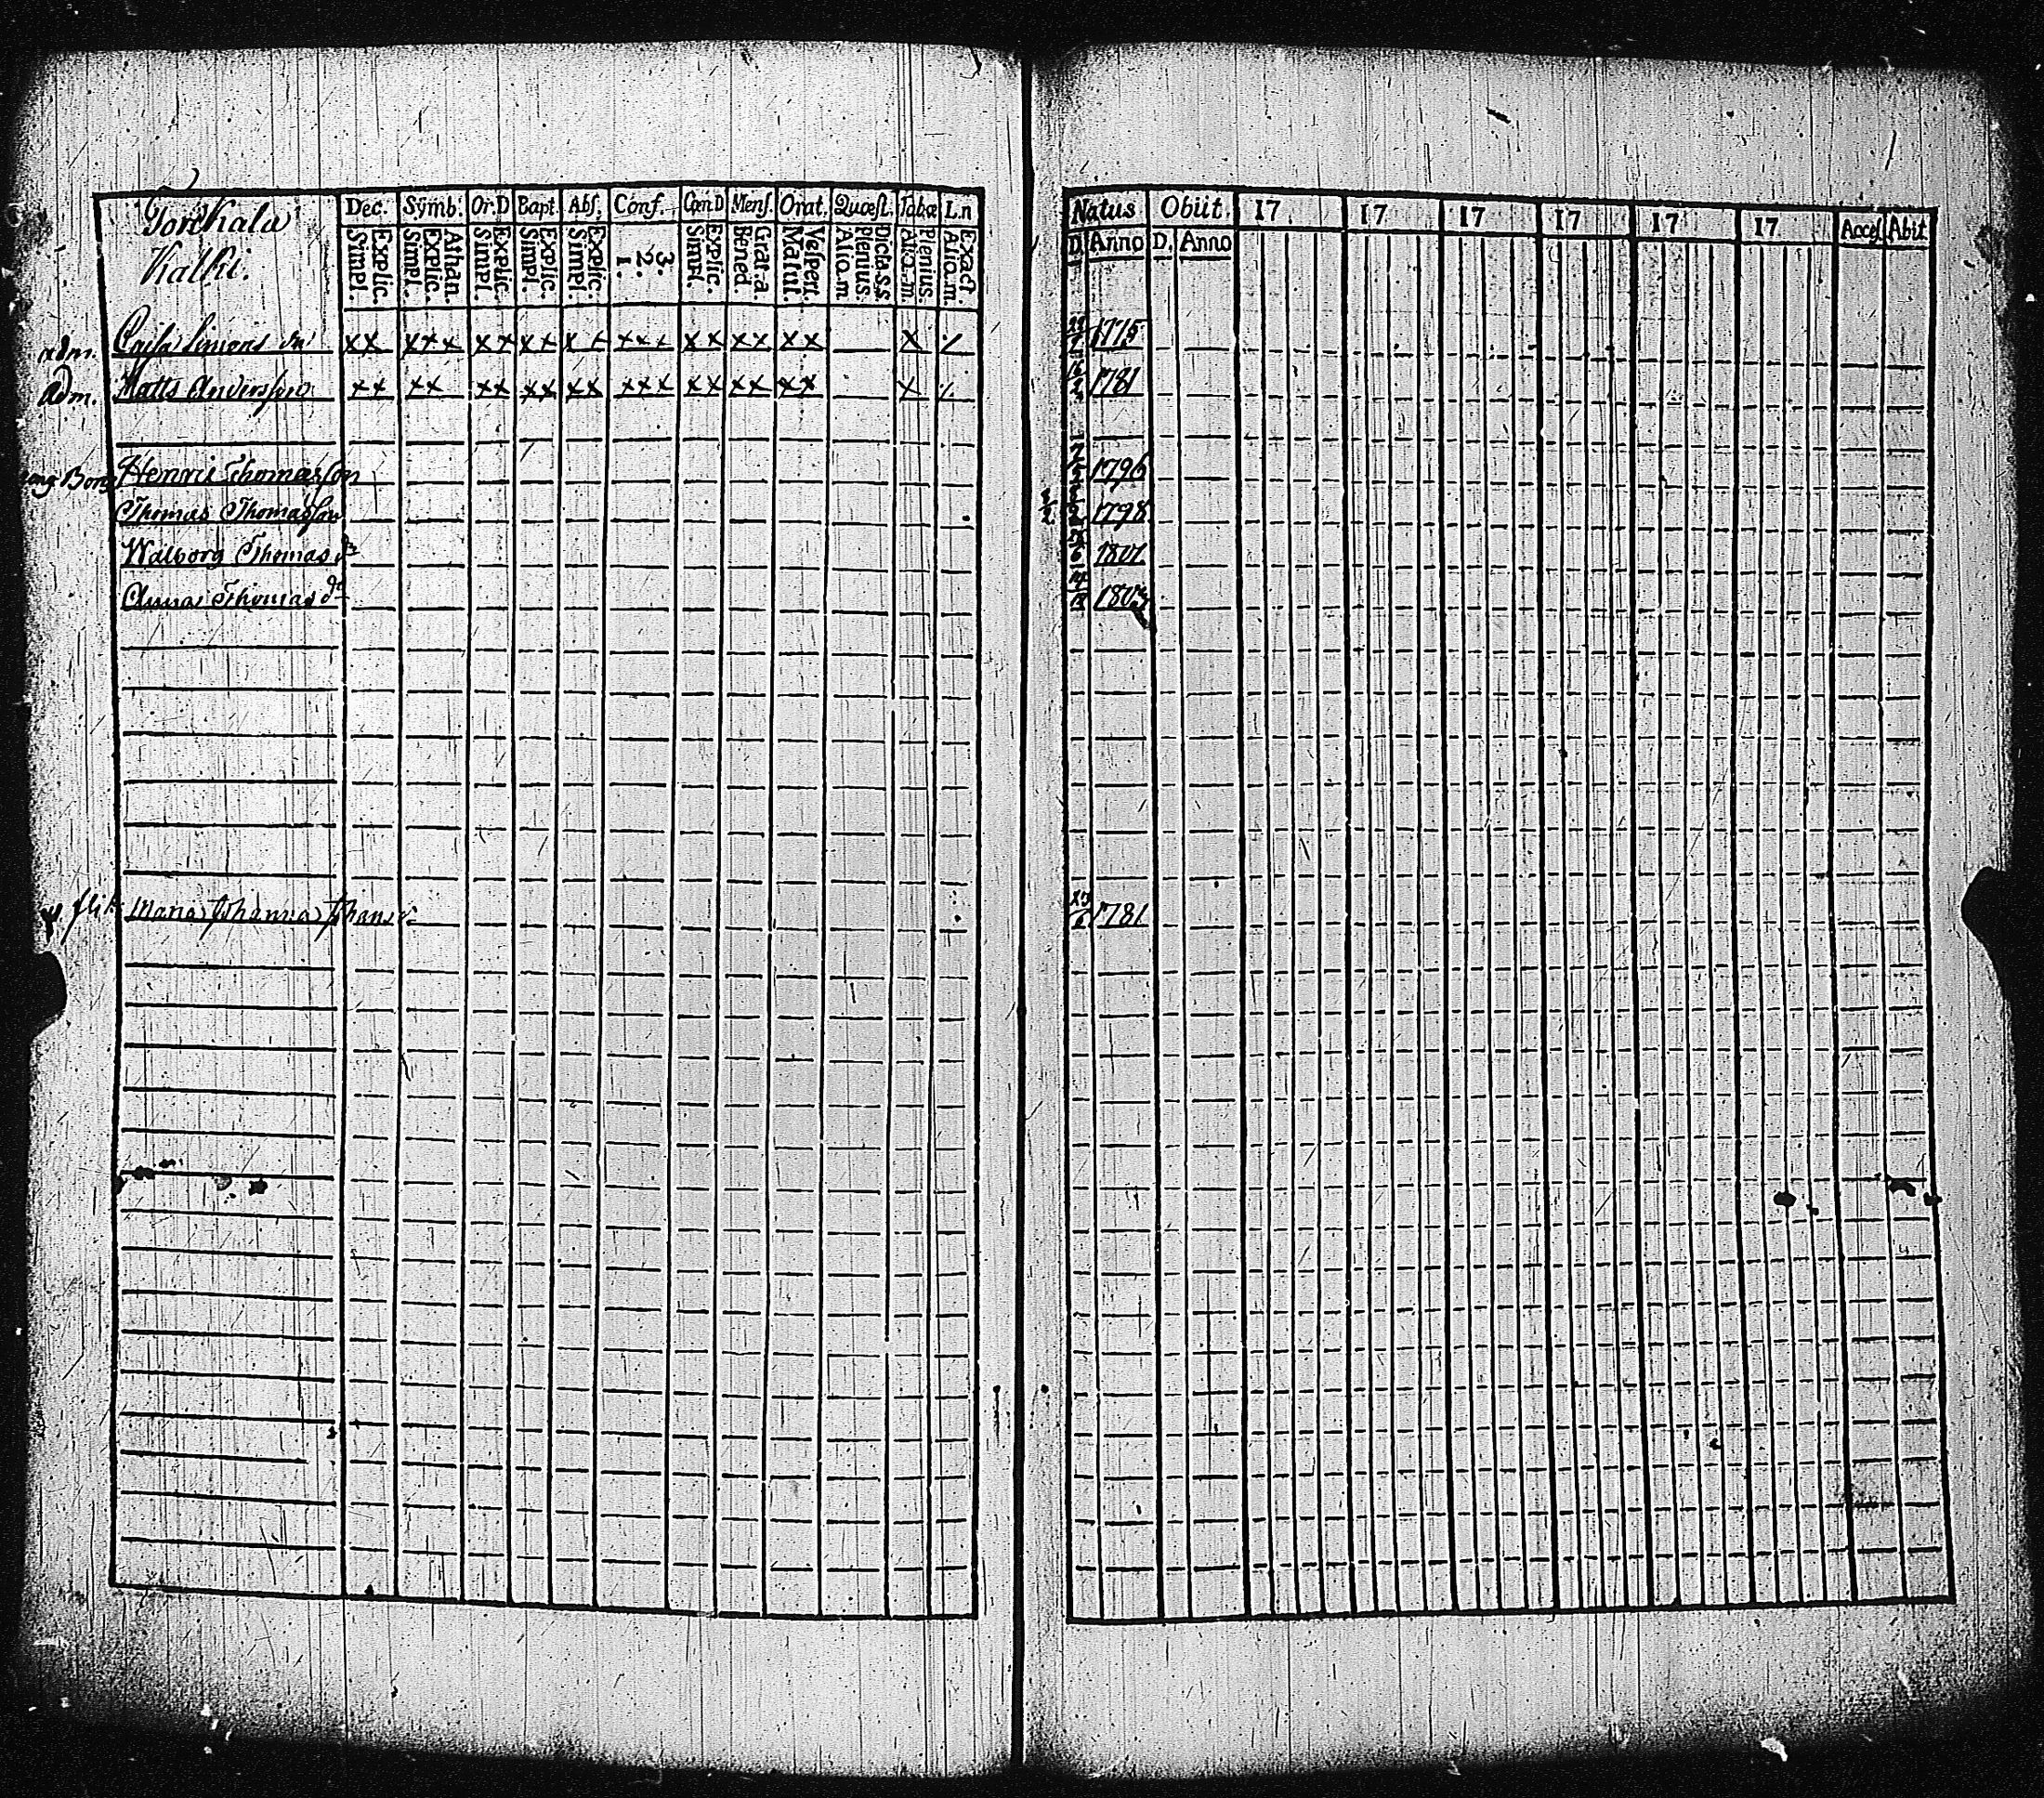 Torkkala
Kalki.
Dec. Symb. Or.D Bapt. Abs. Conf. Cœn.D Mens. Orat. Quæst. Tabæ L.n
Explic. Simpl. Athan. Explic. Simpl. Explic. Simpl. Explic. Simpl. Explic. Simpl. 3. 2. 1. Explic. Simpl. Grat.a. Bened. Vespert. Matut. Dicta.s.s. Plenius. Alio.m Plenius. Alio.m. Exact. Alio.m.
Natus Obiit. 17 17 17 17 17 17 Acces Abit
D. Anno D. Anno
adm. Caisa Simons dr xx xxx xx xx xx xxx xx xx xx x 1775
adm. Matts Andersson xx xx xx xx xx xxx xx xx xx x 1781
Henric Thomasson 1796
Thomas Thomasson 1798
Walborg Thomas dr 1801
Anna Thomas dr
Maria Johanna Johans dr 1781